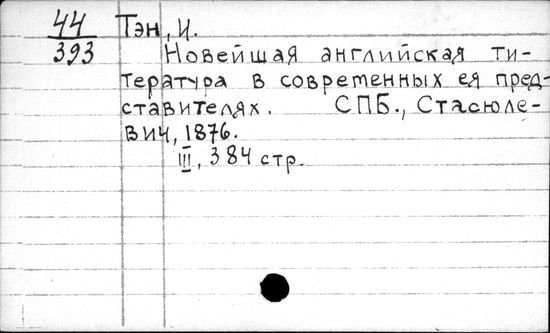 44 Тэн, И.
393 Новейшая английская ти-
тература в современных ея пред-
ставителях. СПБ., Стасюле-
вич, 1876.
III, 384 стр.